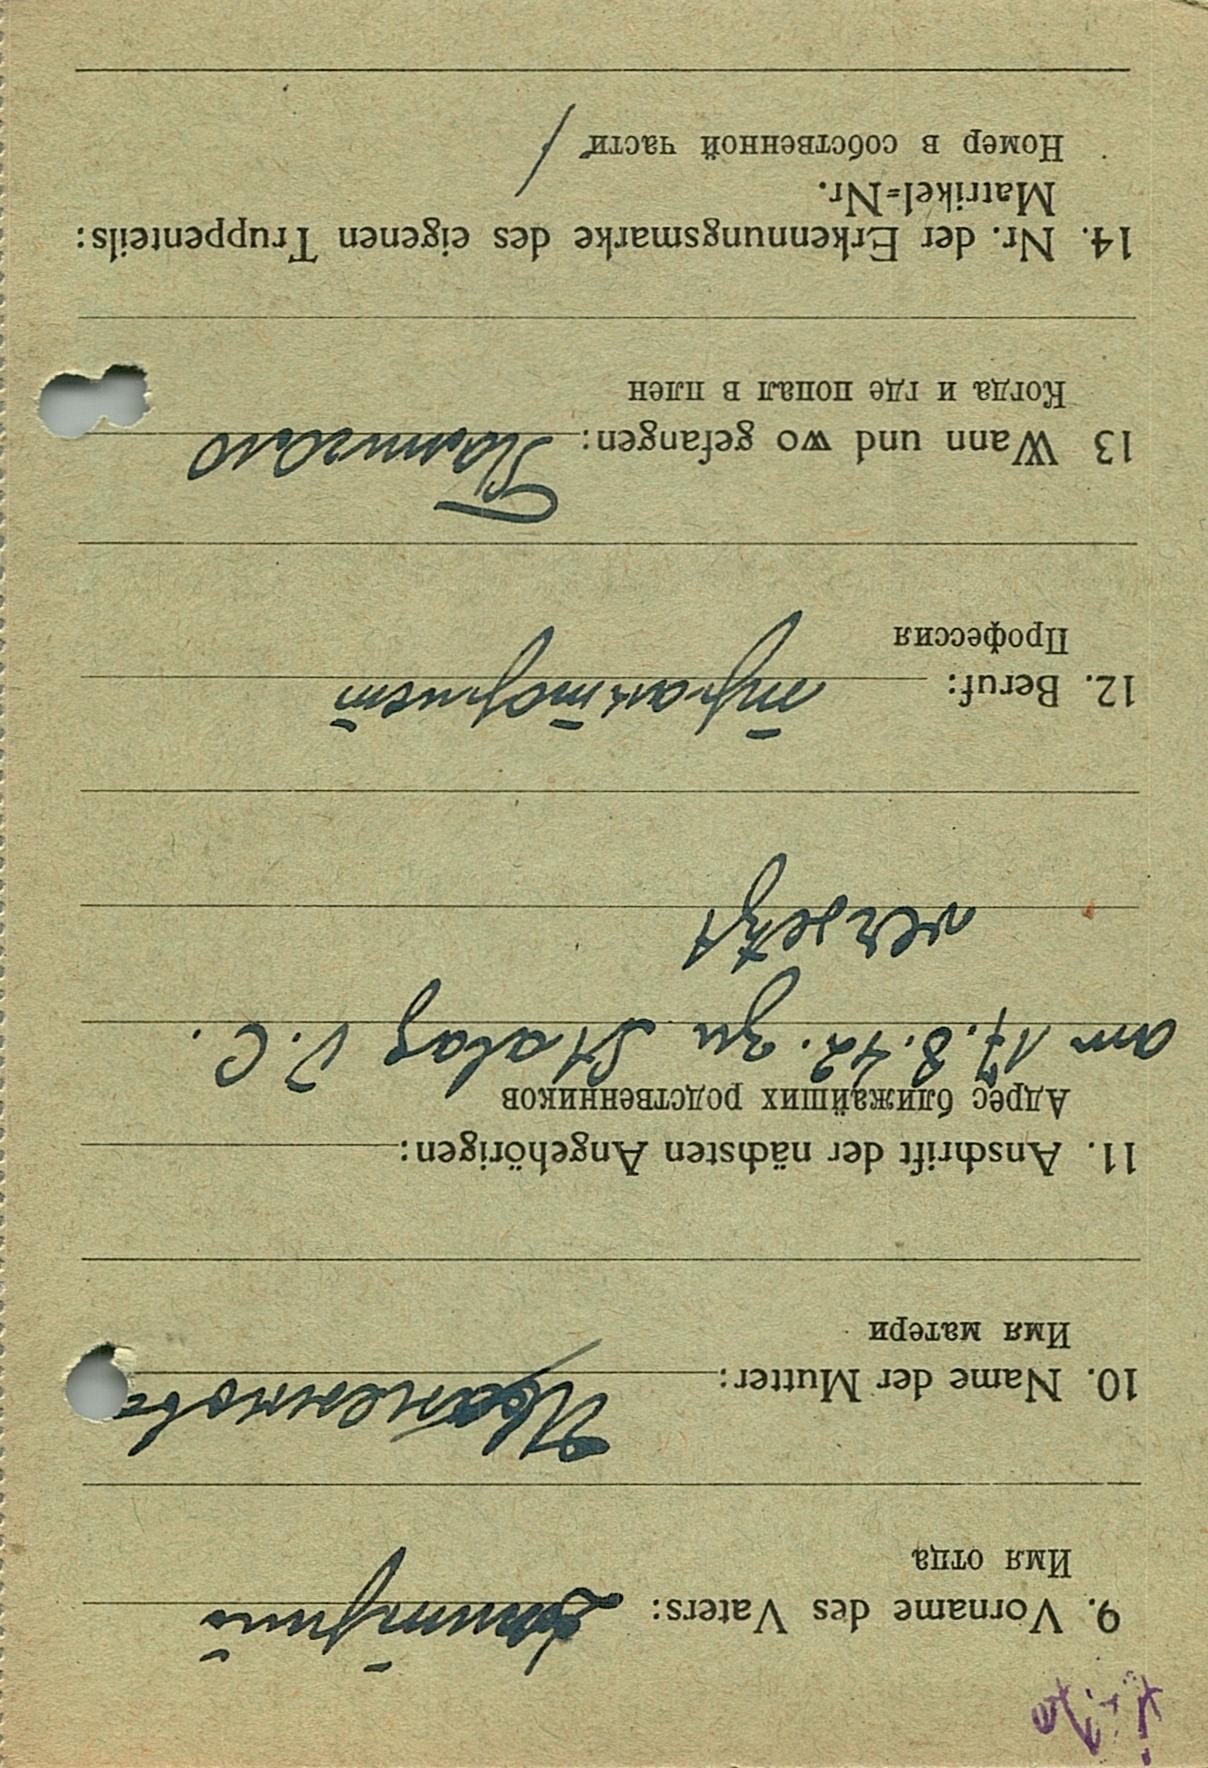 9. Vorname des Vaters: Дмитрий
Имя отца
10. Name der Mutter:
Имя матери
11. Anschrift der nächsten Angehörigen:
Адрес ближайших родственников
am 17.8.42. zu Stalag V. C.
versetzt
12. Beruf: тракторист
Профессия
13 Wann und wo gefangen:
Когда и где попал в плен
14. Nr. der Erkennungsmarke des eigenen Truppenteils:
Matrikel=Nr.
Номер в собственной части /